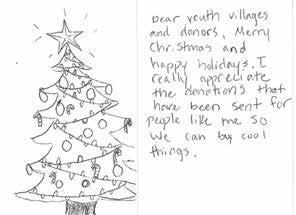 Dear youth villages
and donors, Merry
Christmas and
happy holidays. I
really appreciate
the donations that
have been sent for
people like me so
we can buy cool
things.